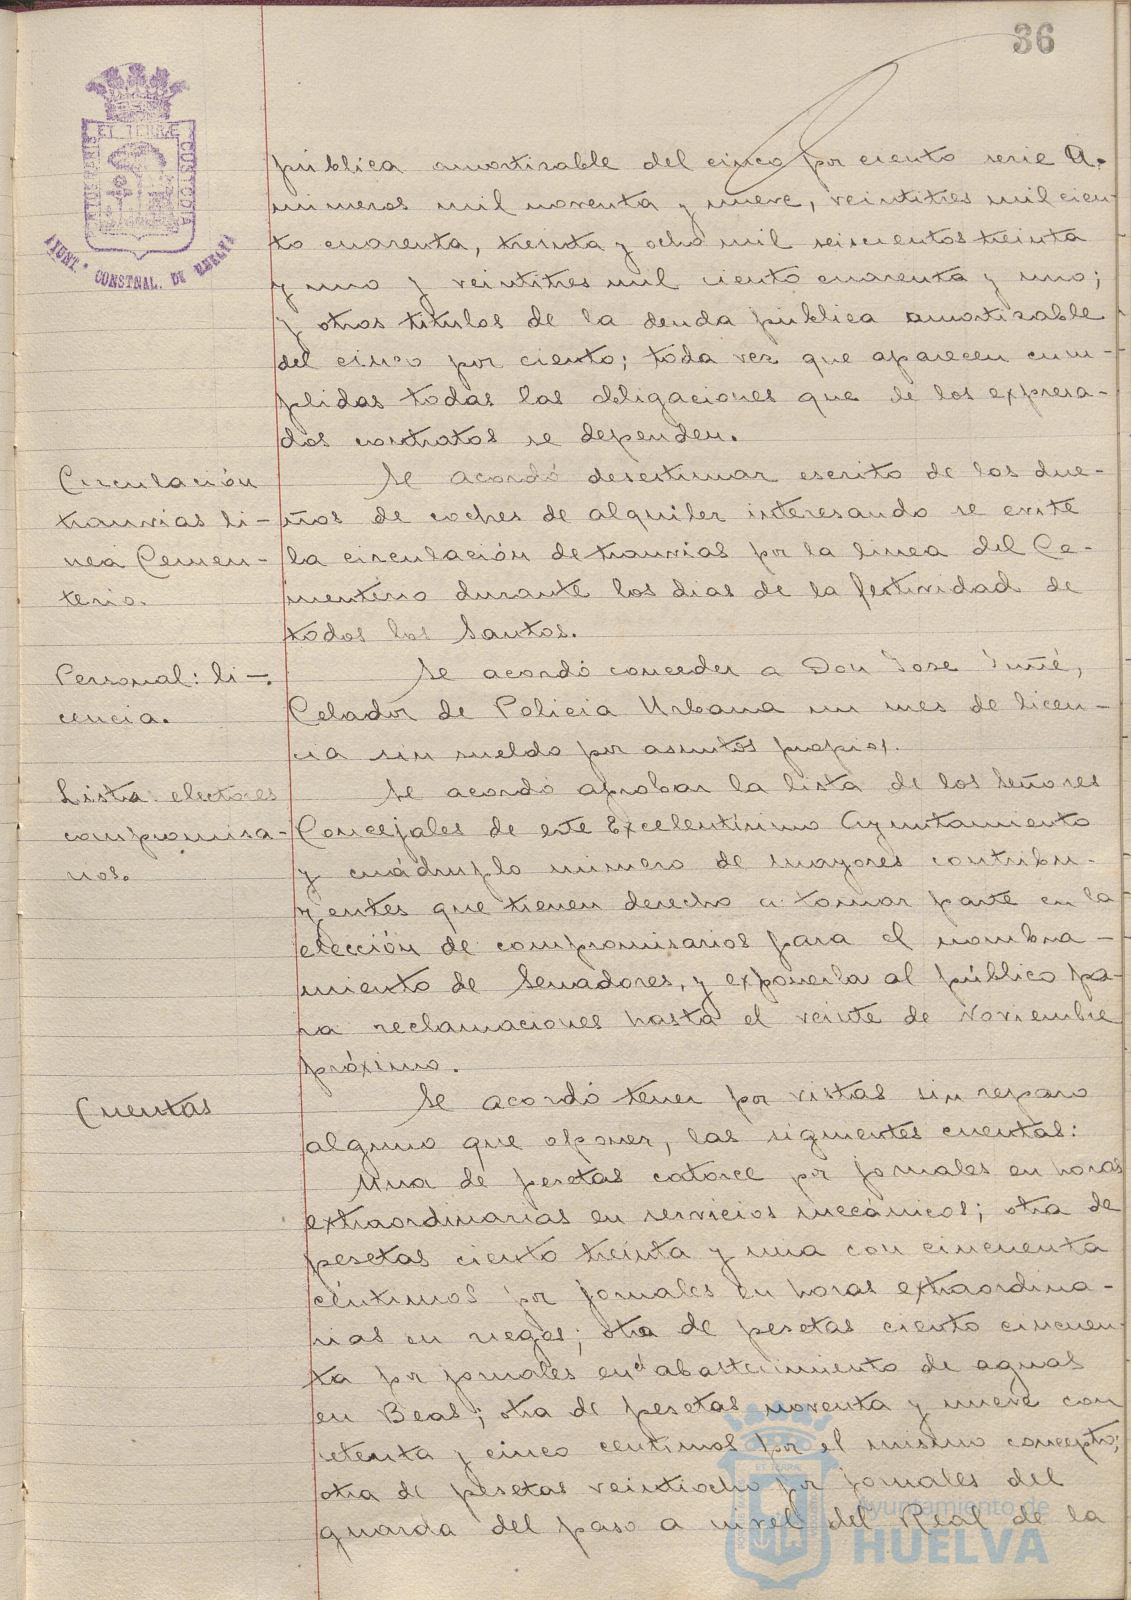 36
PORTUS MARIS ET TERRÆ CUSTODIA
AYUNT. CONSTNAL. DE HUELVA
pública amortizable del cinco por ciento serie A.
números mil noventa y nueve, veintitres mil cien-
to cuarenta, treinta y ocho mil seiscientos treinta
y uno y veintitres mil ciento cuarenta y uno;
y otros títulos de la deuda pública amortizable
del cinco por ciento; toda vez que aparecen cum-
plidas todas las obligaciones que de los expresa-
dos contratos se dependen.
Circulación
tranvias li-
nea Cemen-
terio.
Se acordó desestimar escrito de los due-
ños de coches de alquiler interesando se evite
la circulación de tranvias por la linea del Ce-
menterio durante los dias de la festividad de
todos los Santos.
Personal: li-
cencia.
Se acordó conceder a Don Jose
Celador de Policia Urbana un mes de licen-
cia sin sueldo por asuntos propios.
Lista electores
compromisa-
rios.
Se acordó aprobar la lista de los Señores
Concejales de este Excelentísimo Ayuntamiento
y cuádruplo número de mayores contribu-
yentes que tienen derecho a tomar parte en la
elección de compromisarios para el nombra-
miento de Senadores, y exponerla al público pa-
ra reclamaciones hasta el veinte de Noviembre
próximo.
Cuentas
Se acordó tener por vistas sin reparo
alguno que oponer, las siguientes cuentas:
Una de pesetas catorce por jornales en horas
extraordinarias en servicios mecánicos; otra de
pesetas ciento treinta y una con cincuenta
céntimos por jornales en horas extraordina-
rias en riegos; otra de pesetas ciento cincuen-
ta por jornales en el abastecimiento de aguas
en Beas; otra de pesetas noventa y nueve con
setenta y cinco centimos por el mismo concepto;
otra de pesetas veintiocho por jornales del
guarda del paso a nivel del Real de la
Ayuntamiento de
HUELVA